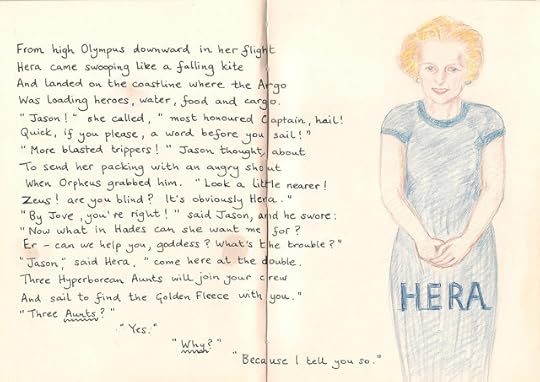 From high Olympus downward in her flight
Hera came swooping like a falling kite
And landed on the coastline where the Argo
Was loading heroes, water, food and cargo.
"Jason!" she called, "most honoured Captain, hail!
Quick, if you please, a word before you sail!"
"More blasted trippers!" Jason thought, about
To send her packing with an angry shout
When Orpheus grabbed him. "Look a little nearer!
Zeus! are you blind? It's obviously Hera."
"By Jove, you're right!" said Jason, and he swore:
"Now what in Hades can she want me for?
Er - can we help you, goddess? What's the trouble?"
"Jason," said Hera, "come here at the double.
Three Hyperborean Aunts will join your crew
And sail to find the Golden Fleece with you."
"Three Aunts?"
"Yes."
"Why?"
"Because I tell you so."
HERA